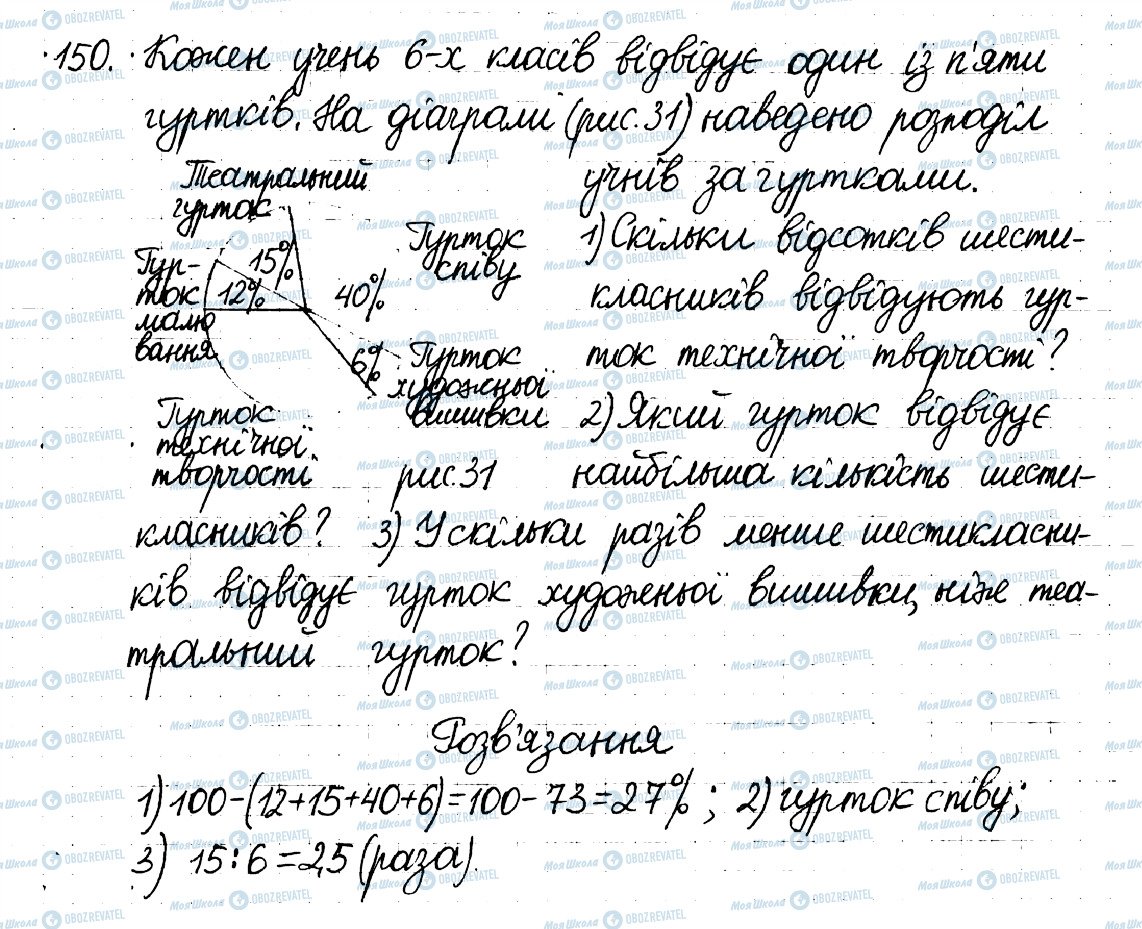 150. Кожен учень 6-х класів відвідує один із п'яти
гуртків. На діаграмі (рис.31) наведено розподіл
учнів за гуртками.
Театральний
гурток
15%
Гурток
співу
40%
Гур-
ток
малю
вання
12%
6%
Гурток
художньої
вишивки
Гурток
технічної
творчості
рис.31
1) Скільки відсотків шести-
класників відвідують гур-
ток технічної творчості?
2) Який гурток відвідує
найбільша кількість шести-
класників? 3) У скільки разів менше шестикласни-
ків відвідує гурток художньої вишивки, ніж теа-
тральний гурток?
Розв'язання
1) 100-(12+15+40+6)=100-73=27%; 2) гурток співу;
3) 15:6=2,5 (раза).
МояШкола OBOZREVATEL